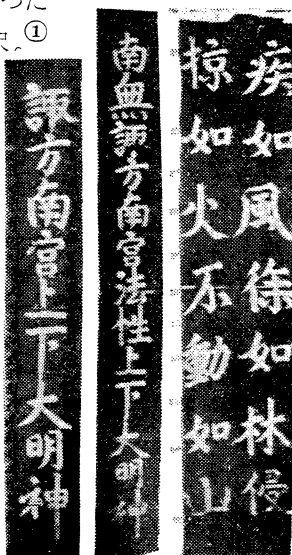 った
①
疾如風徐如林侵
掠如火不動如山
南無諏方南宮法性上下大明神
諏方南宮上下大明神